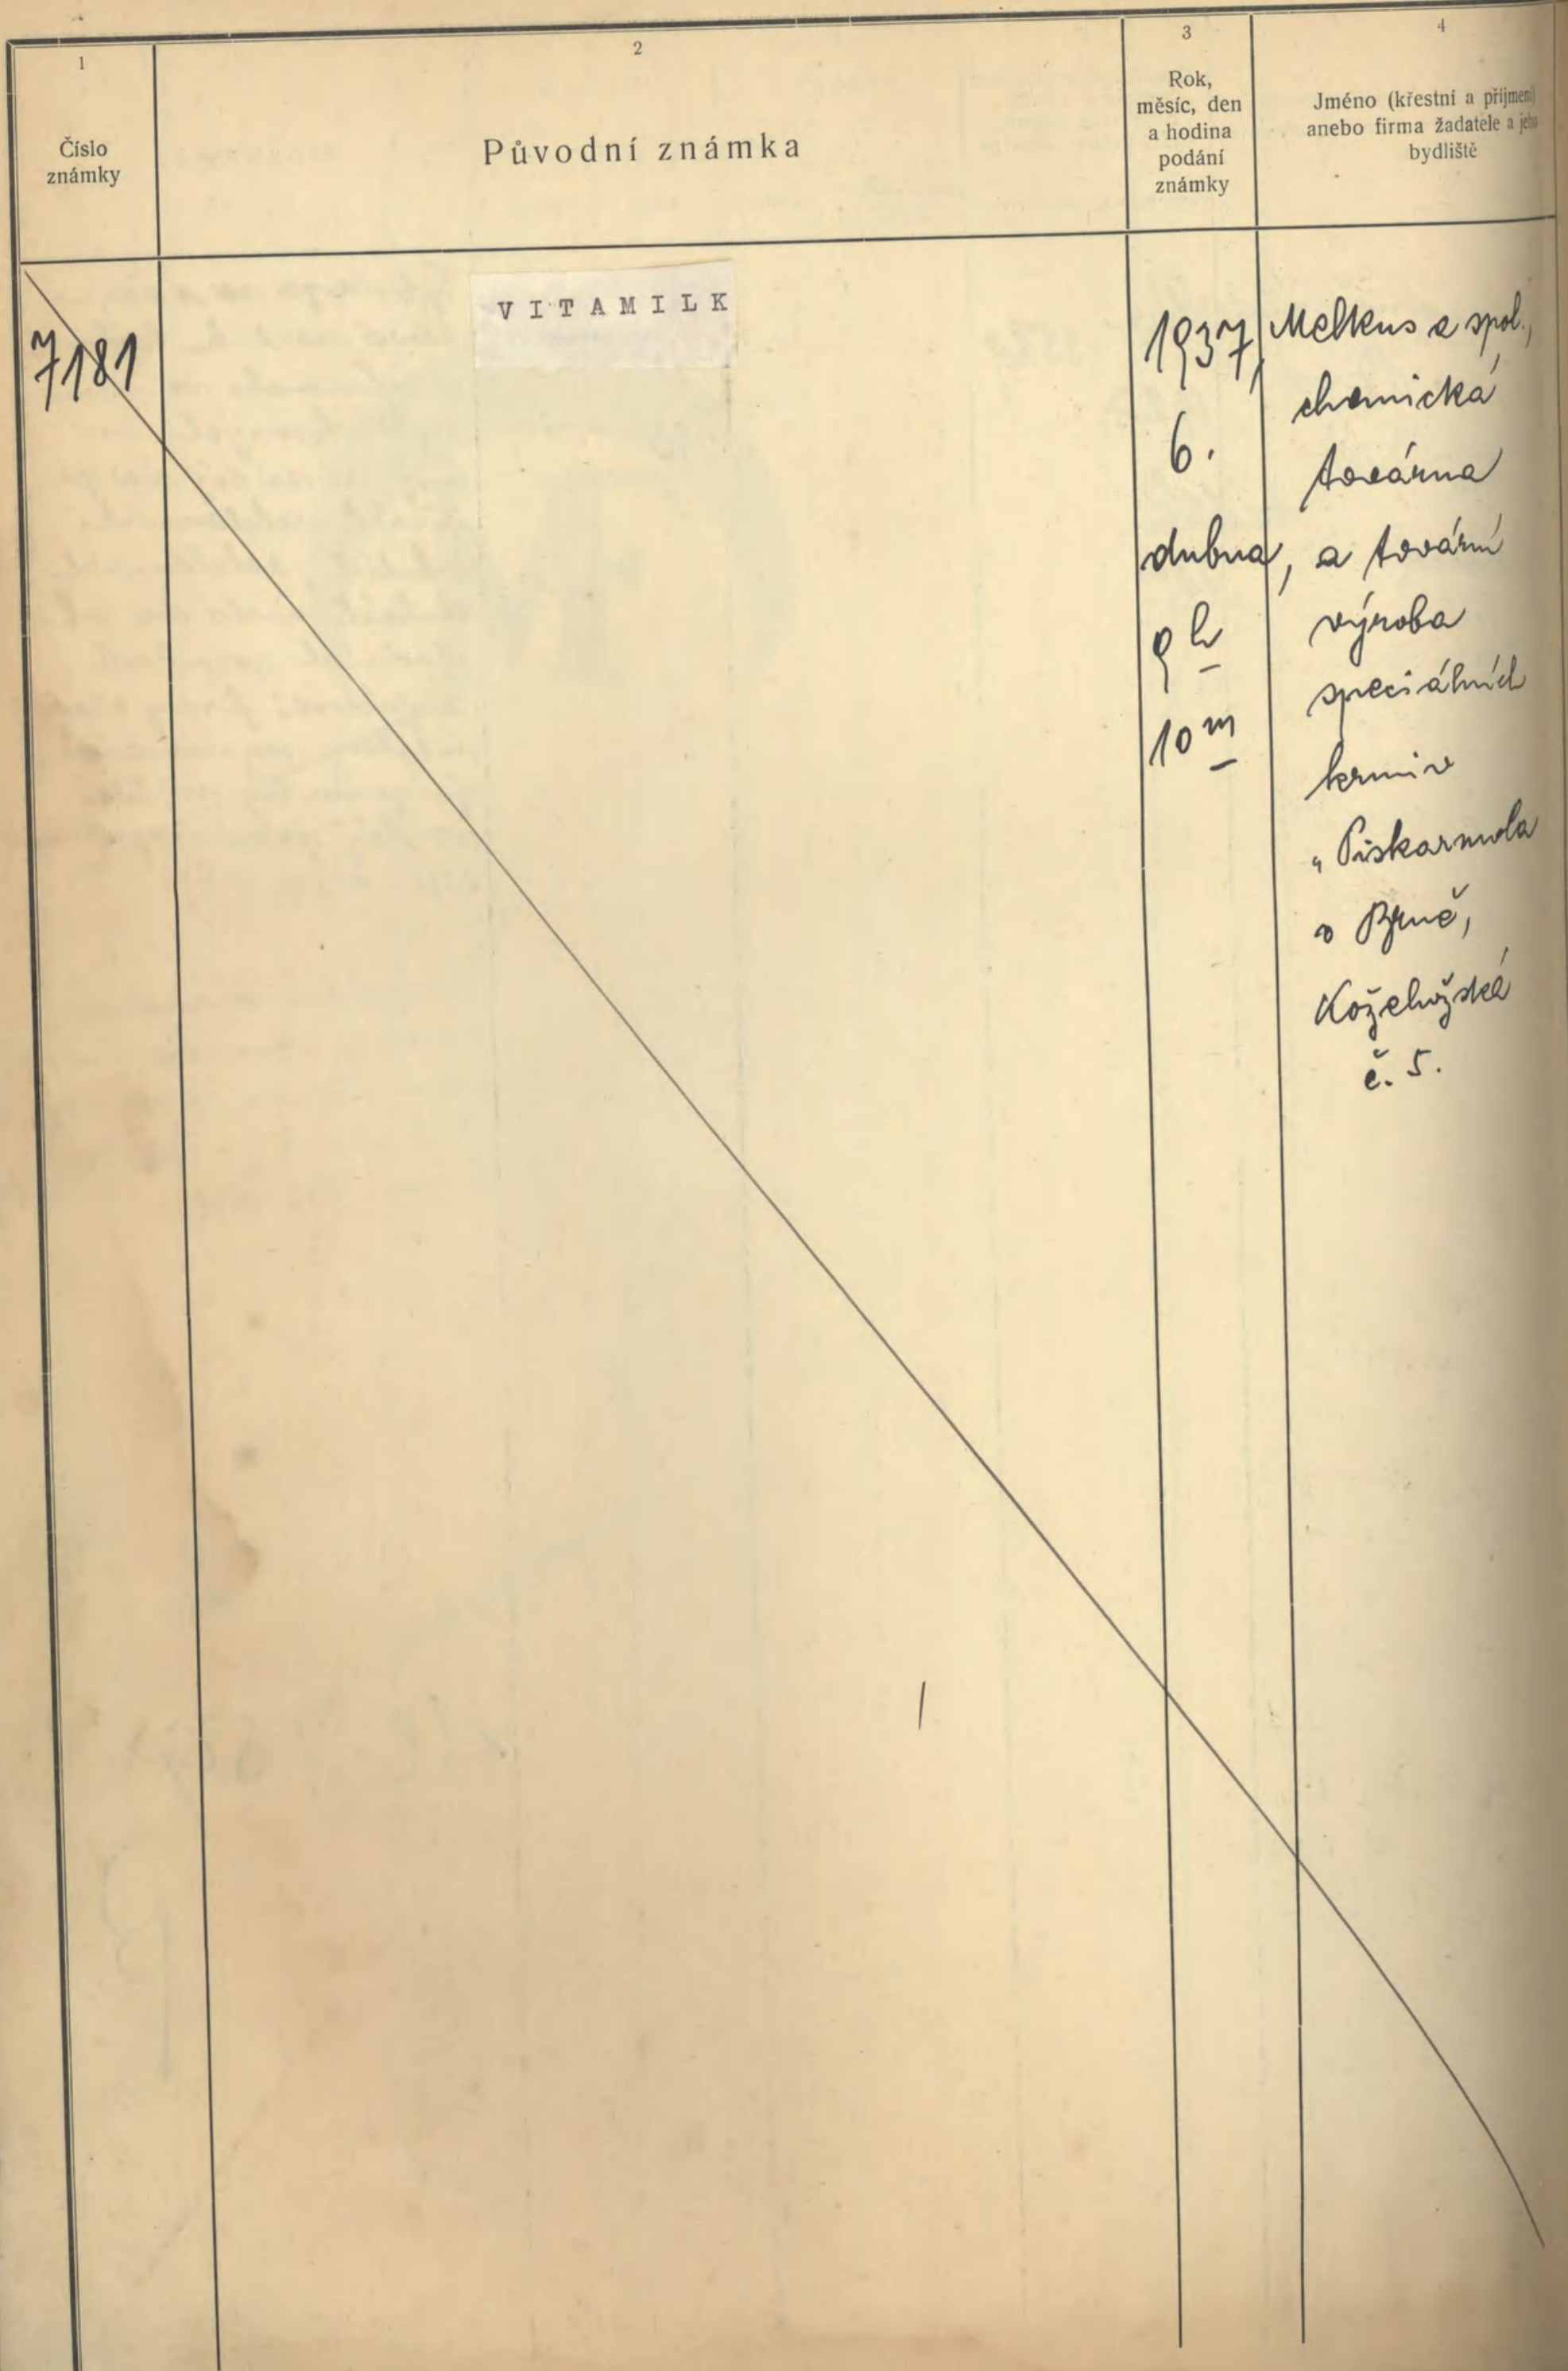 1
Číslo
známky
2
Původní známka
3
Rok,
měsíc, den
a hodina
podání
známky
4
Jméno (křestní a příjmení)
anebo firma žadatele a jeho
bydliště
7181
VITAMILK
1937,
6.
dubna,
9 h
10 m
Melkus a spol.,
chemická
továrna
a tovární
výroba
speciálních
krmiv
„Piskarmola
v Brně,
Koželužská
č. 5.